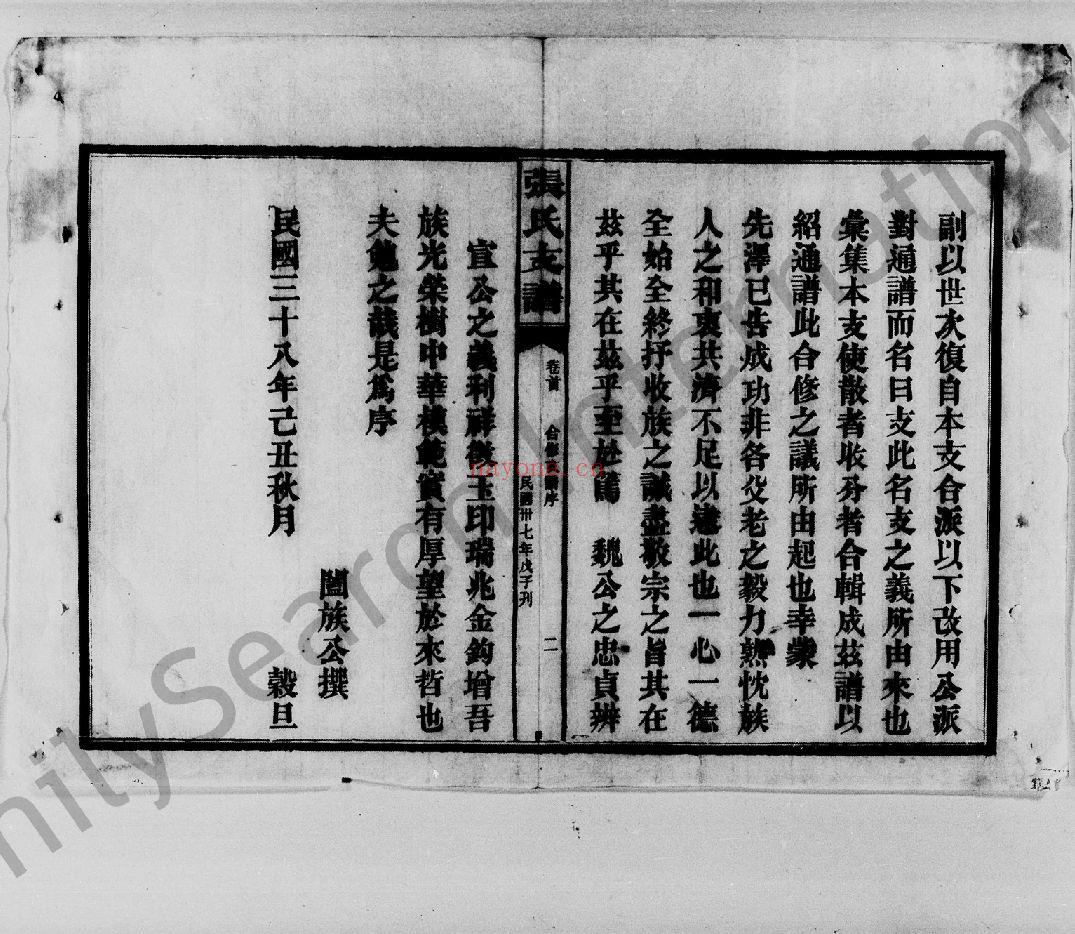 副以世次復自本支合派以下改用公派
對通譜而名曰支此名支之義所由來也
彙集本支使散者收分者合輯成茲譜以
紹通譜此合修之議所由起也幸蒙
先澤已告成功非各父老之毅力熱忱族
人之和衷共濟不足以達此也一心一德
全始全終抒收族之誠盡敬宗之旨其在
茲乎其在茲乎至於篤 魏公之忠貞辨
張氏支譜
卷首 合修支譜序 二
民國卅七年戊子刋
宣公之義利祥發玉印瑞兆金鈎增吾
族光榮樹中華模範實有厚望於來哲也
夫勉之哉是爲序
闔族公撰
民國三十八年己丑秋月 穀旦
FamilySearch International